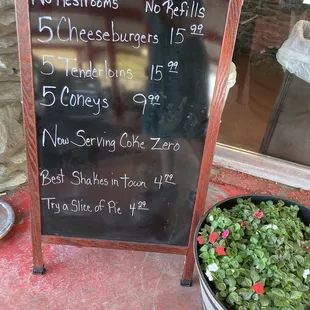 No Restrooms No Refills
5 Cheeseburgers 15.99
5 Tenderloins 15.99
5 Coneys 9.99
Now Serving Coke Zero
Best Shakes in Town 4.29
Try a Slice of Pie 4.29